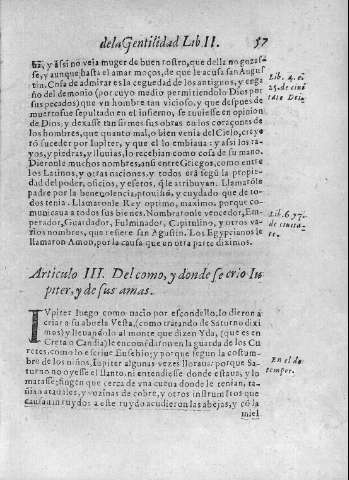 de la Gentilidad Lib II. 57
ba, y assi no veia muger de buen rostro, que della no gozas
se, y aunque hasta el amar moços, de que le acusa san Agus
tin. Cosa de admirar es la ceguedad de los antiguos, y enga
ño del demonio (por cuyo medio permitiendolo Dios por
sus pecados) que vn hombre tan vicioso, y que despues de
muerto fue sepultado en el infierno, se tuuiesse en opinion
de Dios, y dexasse tan firmes sus obras en los coraçones de
los hombres, que quanto mal, o bien venia del Cielo, creyẽ
ro suceder por Iupiter, y que el lo embiaua: y assi los ra-
yos, y piedras, y lluuias, lo recebian como cosa de su mano.
Dieronle muchos nombres, ansi entre Griegos, como entre
los Latinos, y otras naciones, y todos erã segũ la propie
dad del poder, oficios, y efetos, q̃ le atribuyan. Llamarõle
padre por la beneuolencia, prouisiõ, y cuydado que de to-
dos tenia. Llamaronle Rey optimo, maximo, porque co-
municaua a todos sus bienes. Nombraronle vencedor, Em-
perador, Guardador, Fulminador, Capitulino, y otros va-
rios nombres, que refiere san Agustin. Los Egypcianos le
llamaron Amon, por la causa que en otra parte diximos.
Lib. 4. c.
25. de ciui
tate Dei.
Lib. 6. y 7.
de ciuita-
te.
Articulo III. Del como, y donde se crio Iu
piter, y de sus amas.
IVpiter luego como nacio por escondello, lo dieron a
criar a su abuela Vesta, (como tratando de Saturno dixi
mos) y lleuandolo al monte que dizen Yda, (que es en
Creta o Candia) le encomẽdaron en la guarda de los Cu
retes, como lo escriue Eusebio; y porque segun la costum-
bre de los niños, Iupiter algunas vezes lloraua: porque Sa-
turno no oyesse el llanto, ni entendiesse donde estaua, y lo
matasse; fingen que cerca de vna cueua donde le tenian, ta-
ñian atauales, y vozinas de cobre, y otros instrumẽtos que
causauan ruydo: a este ruydo acudieron las abejas, y cõ la
miel
En el do
temper.